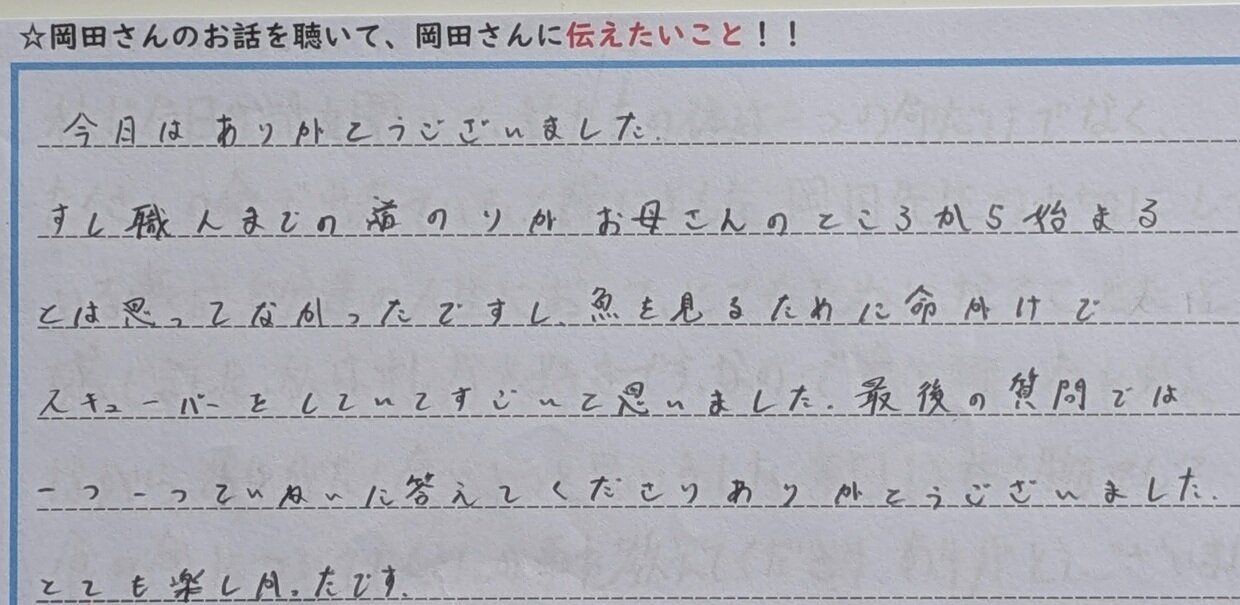 ☆岡田さんのお話を聴いて、岡田さんに伝えたいこと！！
今日はありがとうございました.
すし職人までの道のりが お母さんのところから始まる
とは思ってなかったですし、魚を見るために命がけで
スキューバーをしていてすごいと思いました. 最後の質問では
一つ一つていねいに答えてくださりありがとうございました.
とても楽しかったです.